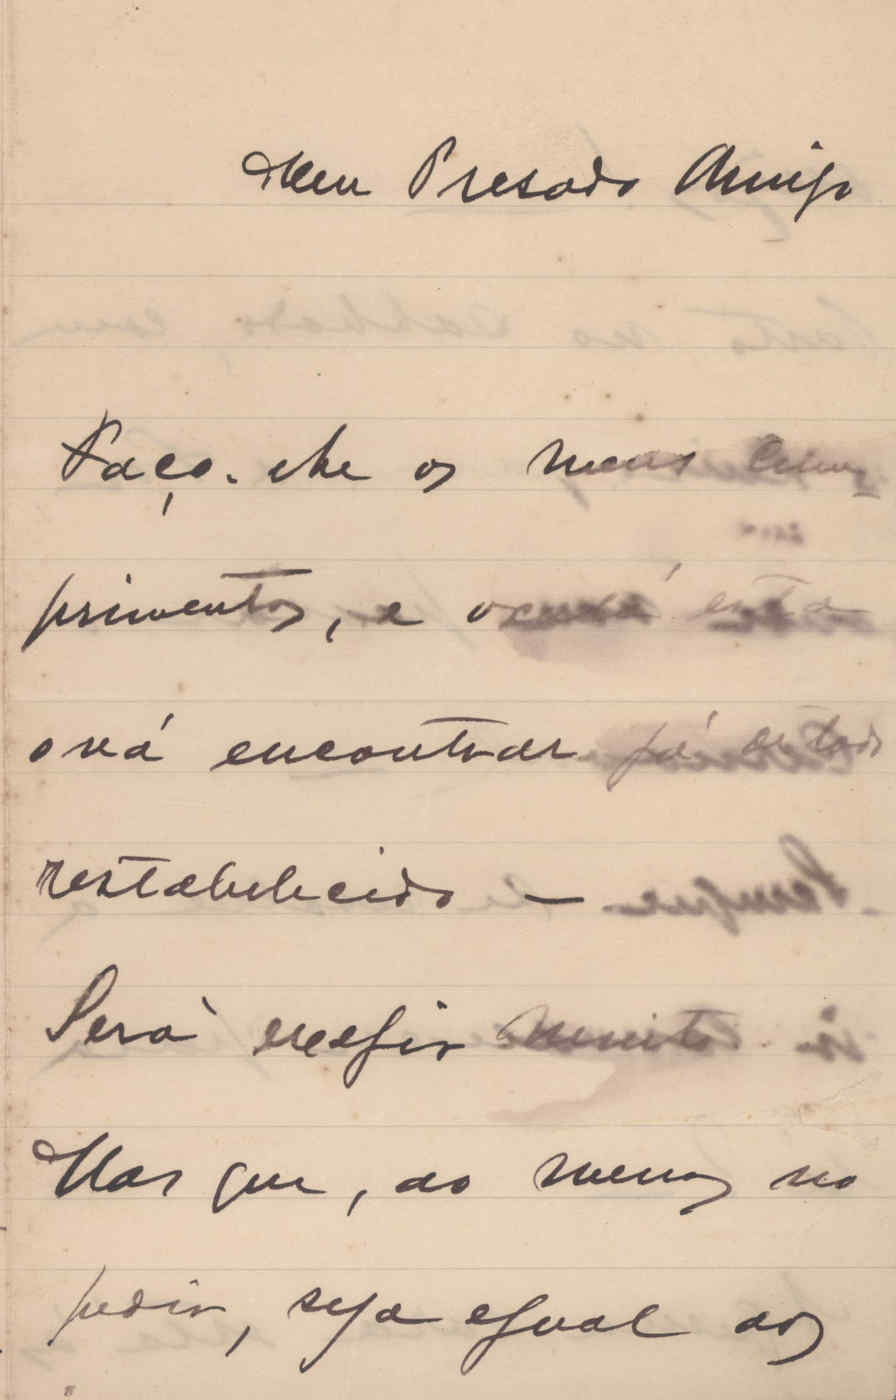 Meu Presado Amigo
Faço-lhe os meus cum-
primentos, e oxalá esta
o vá encontrar já de todo
restabelecido —
Será exegir muito
Mas que, ao menos no
pedir, seja egual aos